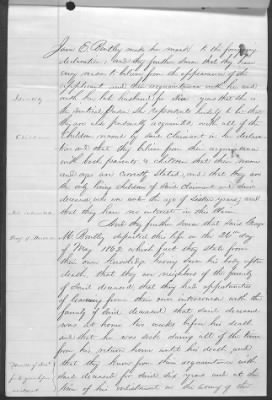 Jane E. Bentley make her mark to the foregoing
declaration; and they further swear that they have
every reason to believe from the appearance of the
applicant and their acquaintance with her and
with her late husband for years that she is
the identical person she represents herself to be: that
they are also personally acquainted with all of the
Children
children named by said claimant in her declara-
tion and that they believe from their acquaintance
with both parents & children that their names
and ages are correctly stated, and that they are
the only living children of said claimant and said
deceased who are under the age of sixteen years; and
that they have no interest in this claim.
And they further swear that said George
M. Bentley departed this life on the 26th day
of May 1862 which fact they state from
their own knowledge having seen his body after
death, that they are neighbors of the family
of said deceased, that they had opportunities
of learning from their own intercourse with the
family of said deceased that said deceased
was at home two weeks before his death
and that he was sick during all of the time
from his return home until his death, and
that they know from their acquaintance with
said deceased for said years and at the
time of his enlistment in the army of the